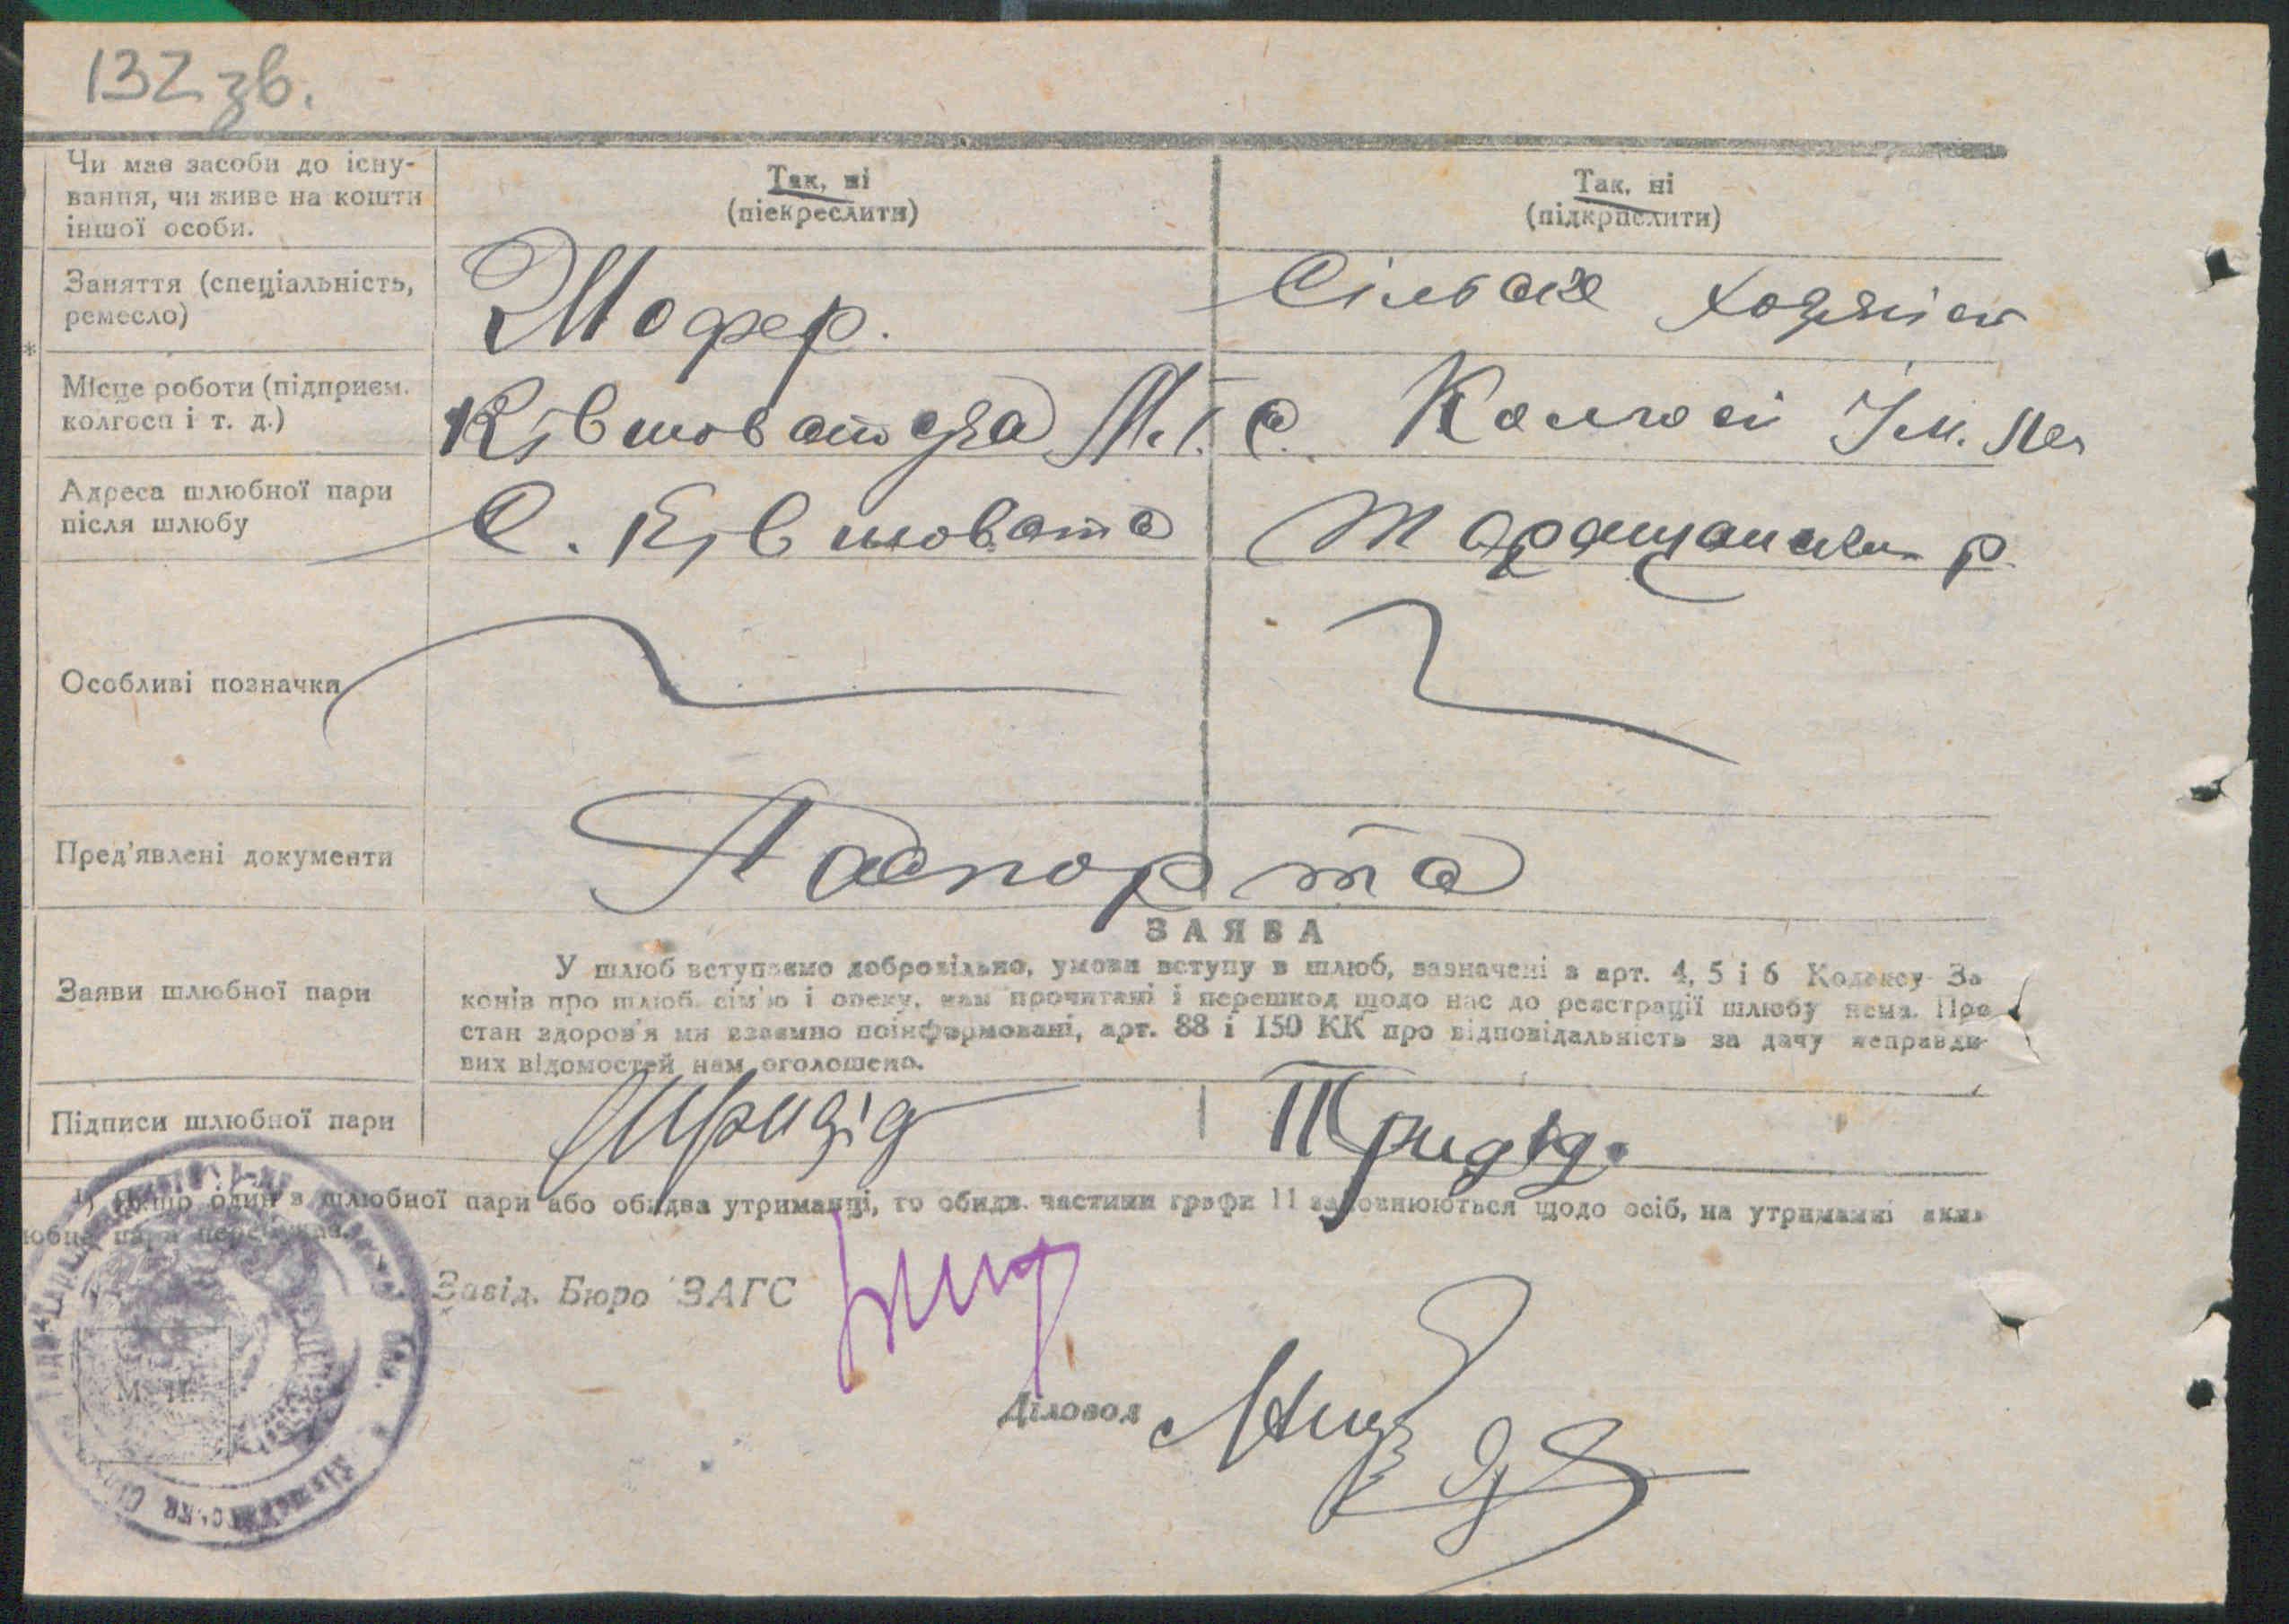 132 зв.
Чи має засоби до існу-
вання, чи живе на кошти
іншої особи.
Так, ні
(піекреслити)
Так, ні
(підкрпслити)
Заняття (спеціальність,
ремесло)
Шофер.
Сільське
Місце роботи (підприєм.
колгосп і т. д.)
Ківшоватська М.Т.С.
Колгосп Ім.
Адреса шлюбної пари
після шлюбу
С. Ківшовата
Таращанськ р.
Особливі позначки
Пред'явлені документи
Паспорта
ЗАЯВА
Заяви шлюбної пари
У шлюб вступаємо добровільно, умови вступу в шлюб, зазначені в арт. 4, 5 і 6 Кодексу За
конів про шлюб. сім'ю і опеку, нам прочитані і перешкод щодо нас до реєстрації шлюбу нема. Про
стан здоров'я ми взаємно поінформовані, арт. 88 і 150 КК про відповідальність за дачу неправди-
вих відомостей нам оголошено.
Підписи шлюбної пари
Придід.
¹) Якщо один з шлюбної пари або обидва утриманці, то обидв. частини графи 11 заповнюються щодо осіб, на утриманні яких
Завід. Бюро ЗАГС
М. П.
Діловод